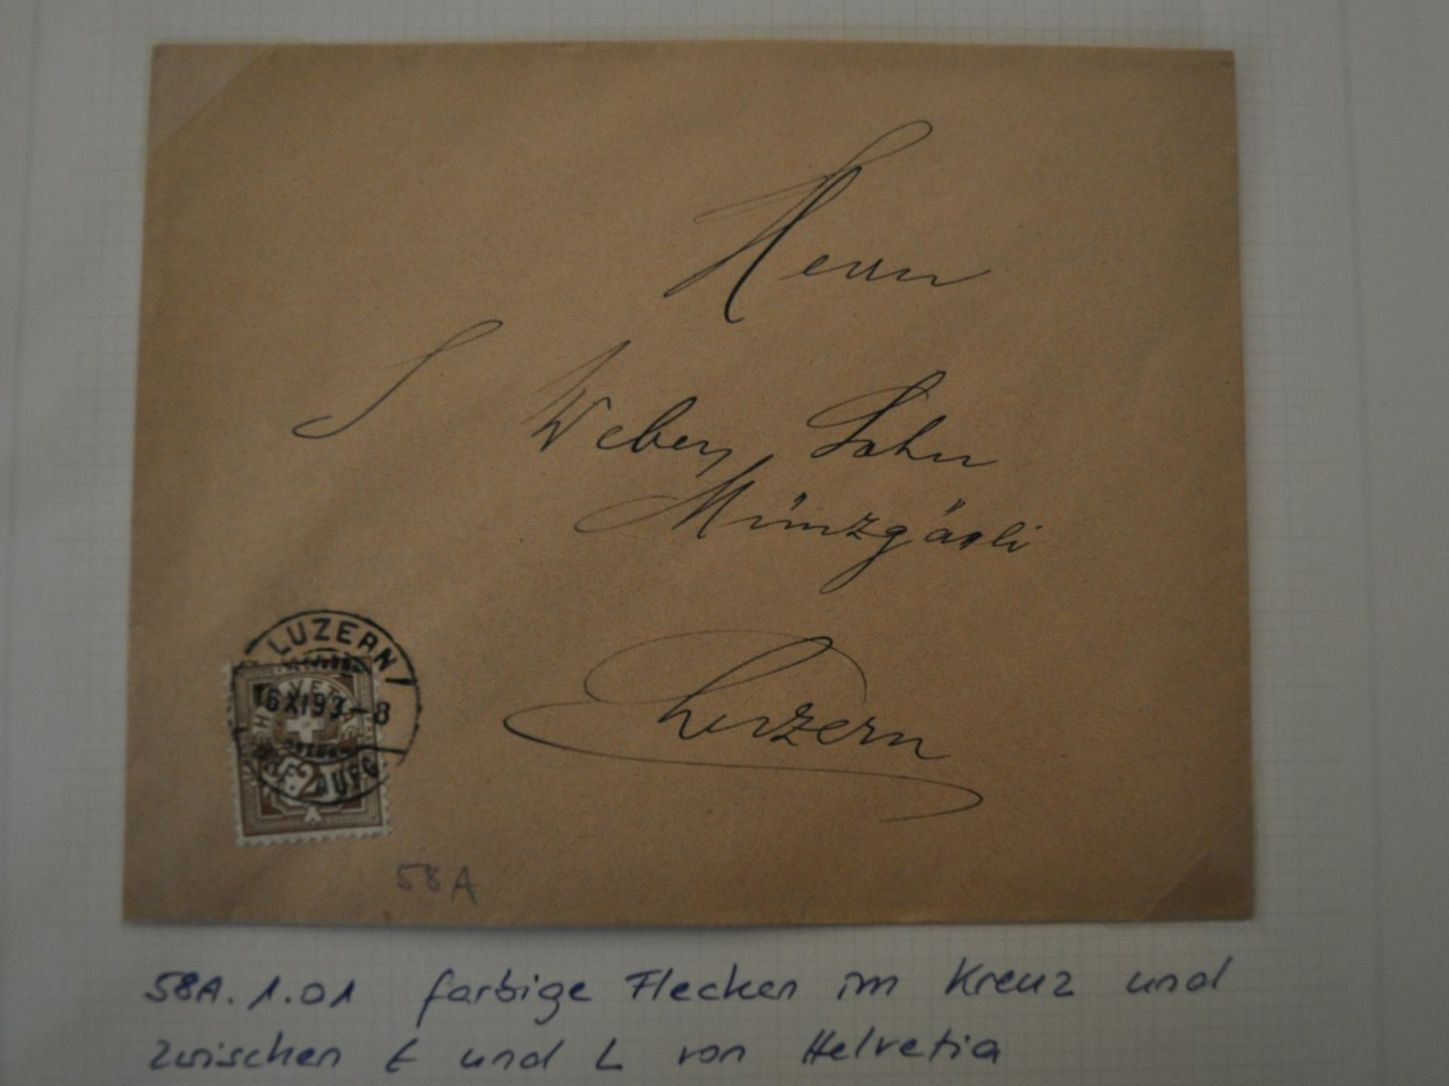 Herrn
J Weber, Sohn
Münzgässli
Luzern
LUZERN
16 XI 93 - 8
BRF. AUFG.
HELVETIA
2
58A
58A.1.01 farbige Flecken im Kreuz und
zwischen E und L von Helvetia